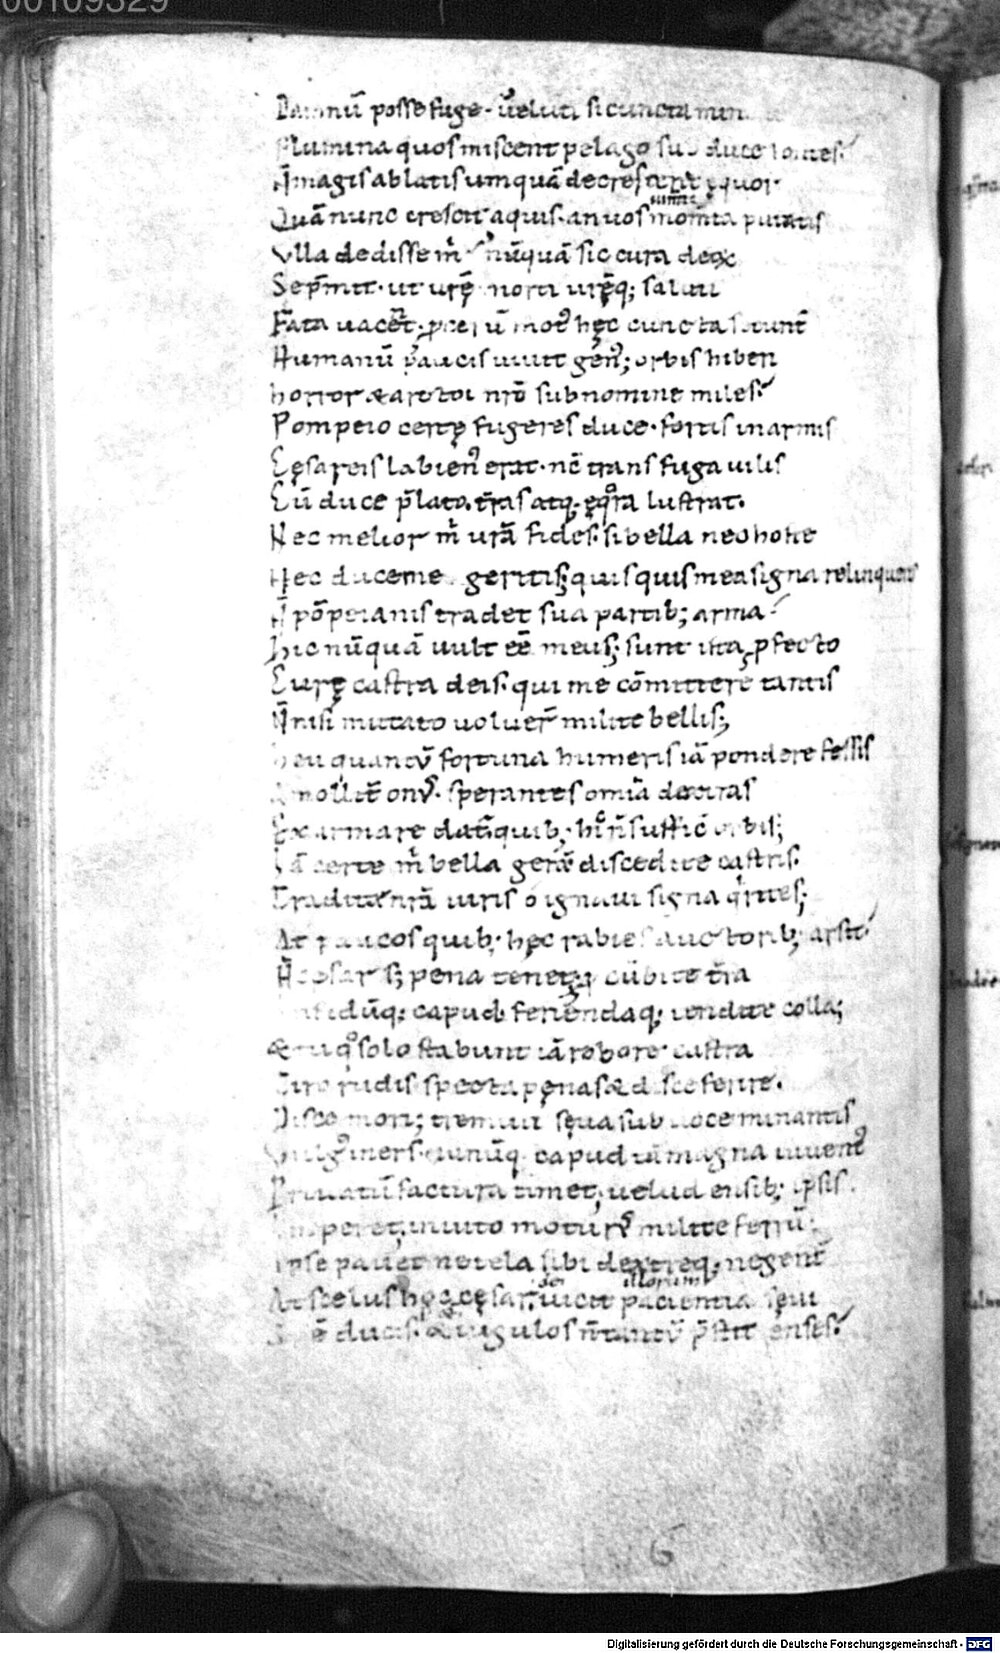 00109329
posse fugę. velut si cuncta min
Flumina quos miscent pelago subducere
N̄ magis ablatis umquā decresceret ęquor
summe
Quā nunc crescit aquis. an vos mom̄ta putatis
Vlla dedisse m̄ nūquā sic cura deoꝝ
Se p̄mit. ut urę̄ morti urę̄q; saluti
Fata vacēt. ꝓcerū motꝰ hęc cuncta
Humanū paucis uiuit genꝰ; orbis hiberi
horror & arctoi nr̄o sub nomine miles.
Pompeio certę fugeres duce. fortis in armis
Cęsareis labienꝰ erat. nc̄ transfuga uilis
Cū duce p̄lato. t̄ras atq; ęq̊ra lustrat.
Nec melior m̄ urā fides. si bella nec hoste
Nec duce me geritis; quisquis mea signa relinquens
N̄ pōpeianis tradet sua partib; arma
Hic nūquā uult eē meus; sunt ista ꝓfecto
Curę castra deis. qui me cōmittere tantis
N̄ nisi mutato uoluer̄ milite bellis;
heu quantū fortuna humeris iā pondere fessis
Amolitr̄ onꝰ. sperantes om̄ia dextras
Exarmare dat̄ quib; hic n̄ sufficit orbis;
Iā certe m̄ bella gerā discedite castris.
Tradite nr̄a uiris o ignaui signa q̇rites;
At paucos quib; hęc rabies auctorib; arsit
N̄ cęsar s; pena tenet. procūbite t̄ra
Infidūq; capud feriendaq; tendite colla;
& tu q̊ solo stabunt iā robore castra
Tiro rudis specta pęnas & disce ferire.
Disce mori; tremuit sęua sub uoce minantis
Vulgꝰ iners. unūq; capud tā magna iuuentꝰ
Priuatū factura timet; uelud ensib; ipsis.
Imperet. inuito moturꝰ milite ferrū;
Ipse pauet ne tela sibi dextręq; negent̄
illorum
At scelus hęc cęsar. uicit pacientia sęui
ducis. & iugulos n̄ tantū p̄stitit enses.
6
Digitalisierung gefördert durch die Deutsche Forschungsgemeinschaft - DFG